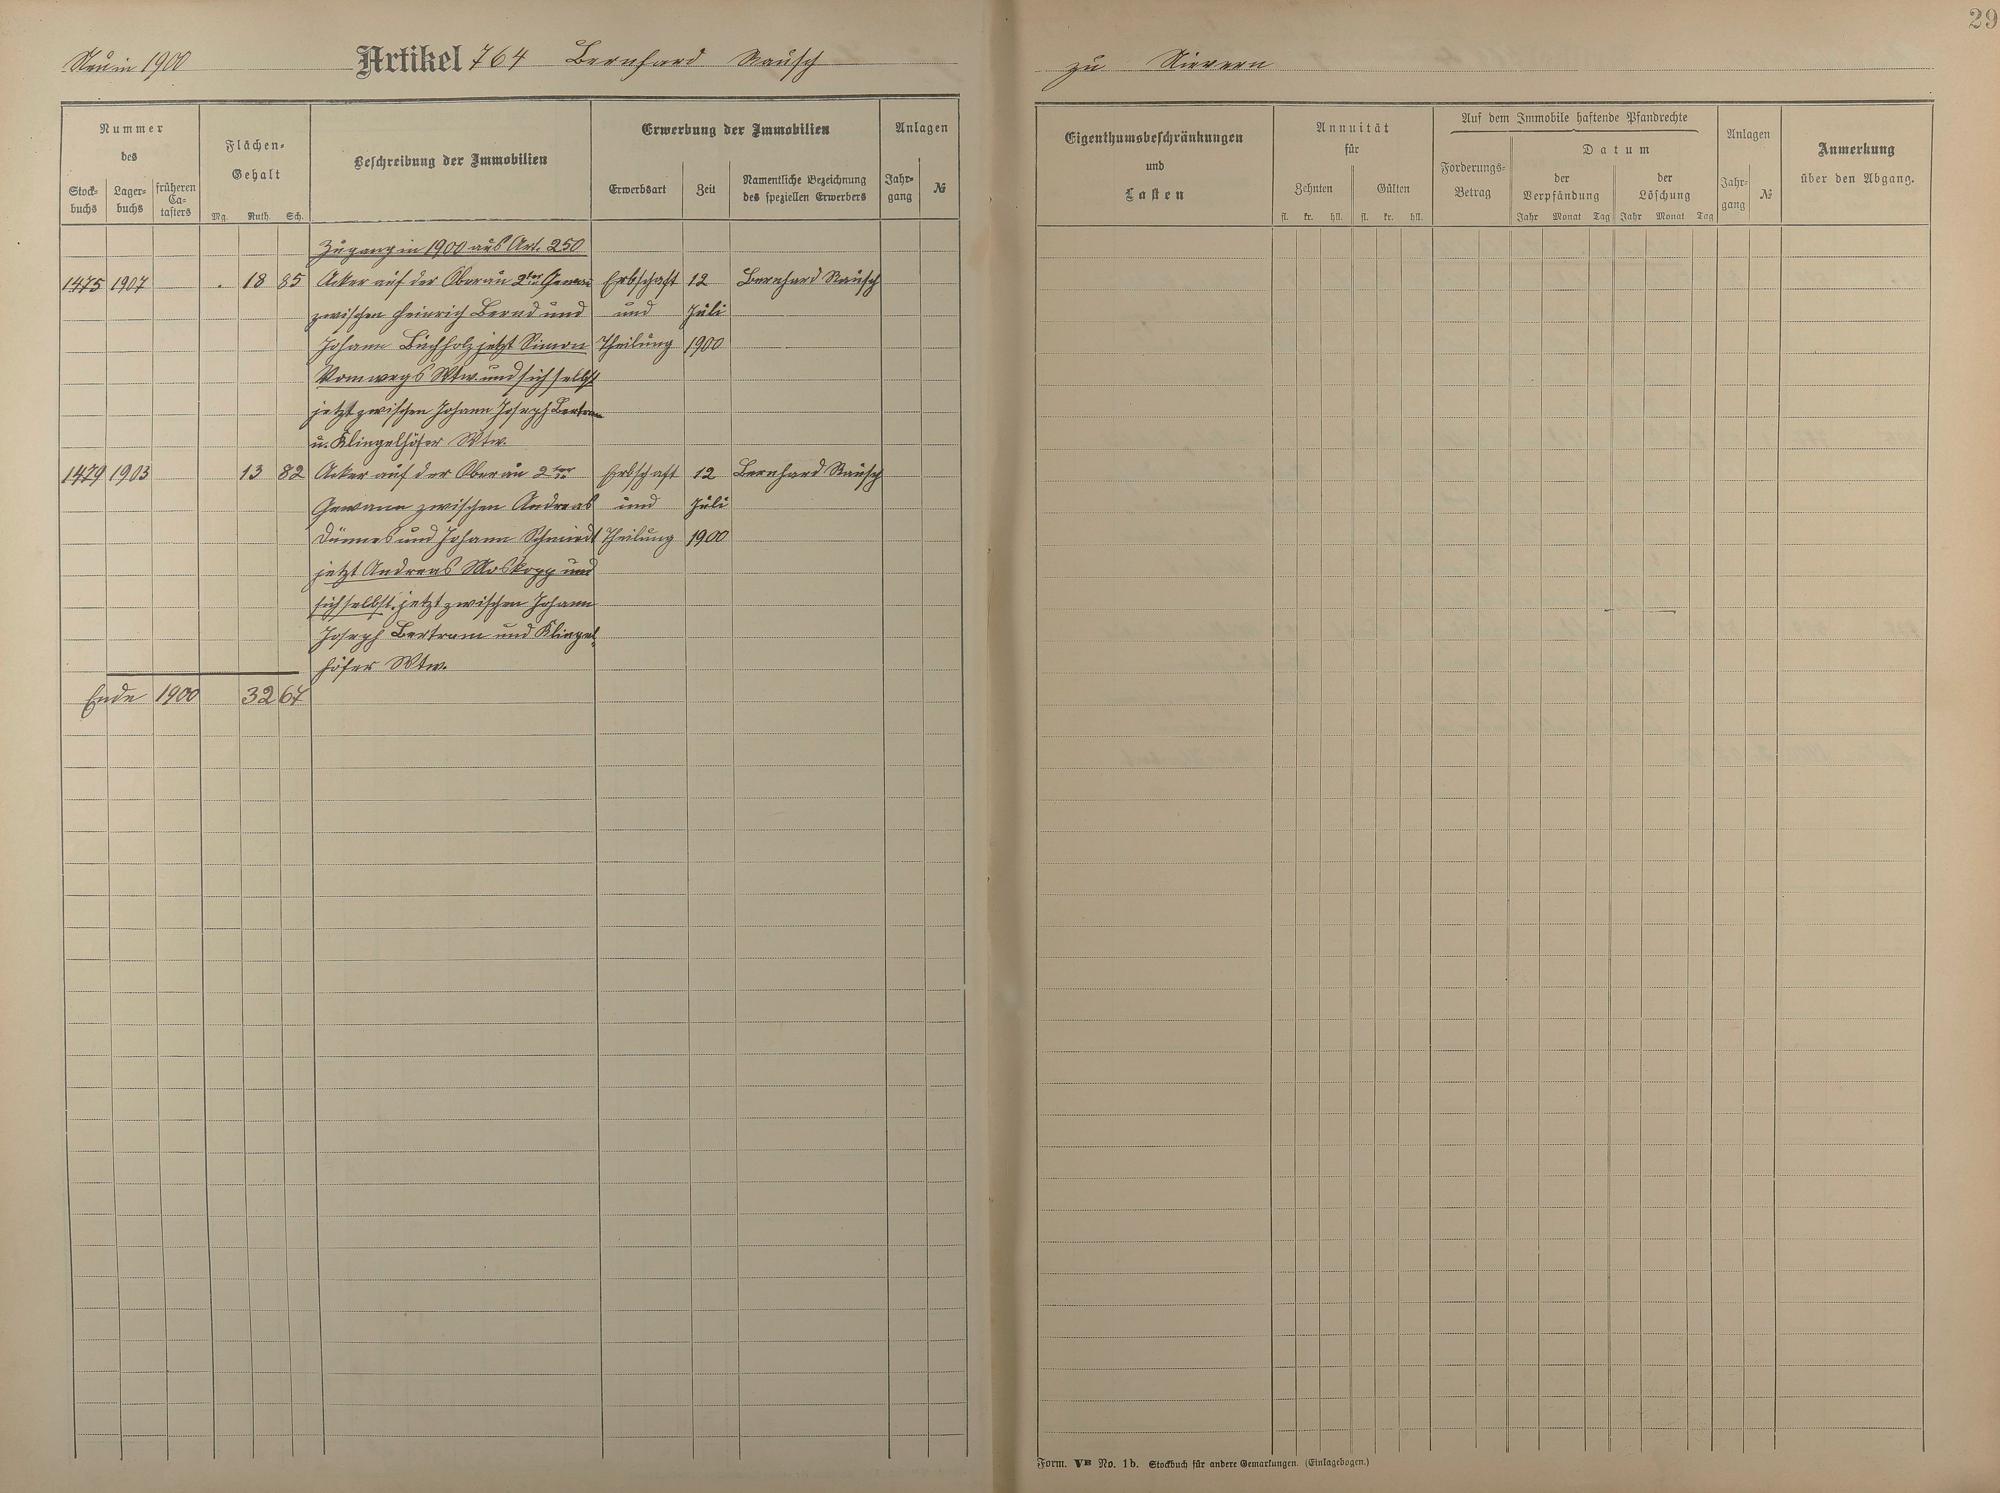 29
Neu in 1900 Artikel 764 Bernhard Rausch
zu Nievern
Nummer
des
Stock-
buchs
Lager-
buchs
früheren
Ca-
tasters
Flächen-
Gehalt
Mg. Ruth. Sch.
Beschreibung der Immobilien
Erwerbung der Immobilien
Erwerbsart
Zeit
Namentliche Bezeichnung
des speziellen Erwerbers
Anlagen
Jahr-
gang
№
Zugang in 1900 aus Art. 250
1475 1907 . 18 85 Acker auf der Oberau 2ter Gewann Erbschaft 12 Bernhard Rausch
zwischen Heinrich Bernd und und Juli
Johann Buchholz jetzt Simon Theilung 1900
Vomwegs Wtw. und sich selbst
jetzt zwischen Johann Joseph Bertram
u. Klingelhöfer Wtw.
1479 1903 13 82 Acker auf der Oberau 2ter Erbschaft 12 Bernhard Rausch
Gewann zwischen Andreas und Juli
Dünnes und Johann Schmidt Theilung 1900
jetzt Andreas Moskopp und
sich selbst, jetzt zwischen Johann
Joseph Bertram und Klingel-
höfer Wtw.
Ende 1900 32 67
Eigenthumsbeschränkungen
und
Lasten
Annuität
für
Zehnten
Gülten
fl. kr. hll. fl. kr. hll.
Auf dem Immobile haftende Pfandrechte
Forderungs-
Betrag
Datum
der
Verpfändung
der
Löschung
Jahr Monat Tag Jahr Monat Tag
Anlagen
Jahr-
gang
№
Anmerkung
über den Abgang.
Form. VB No. 1b. Stockbuch für andere Gemarkungen. (Einlagebogen.)